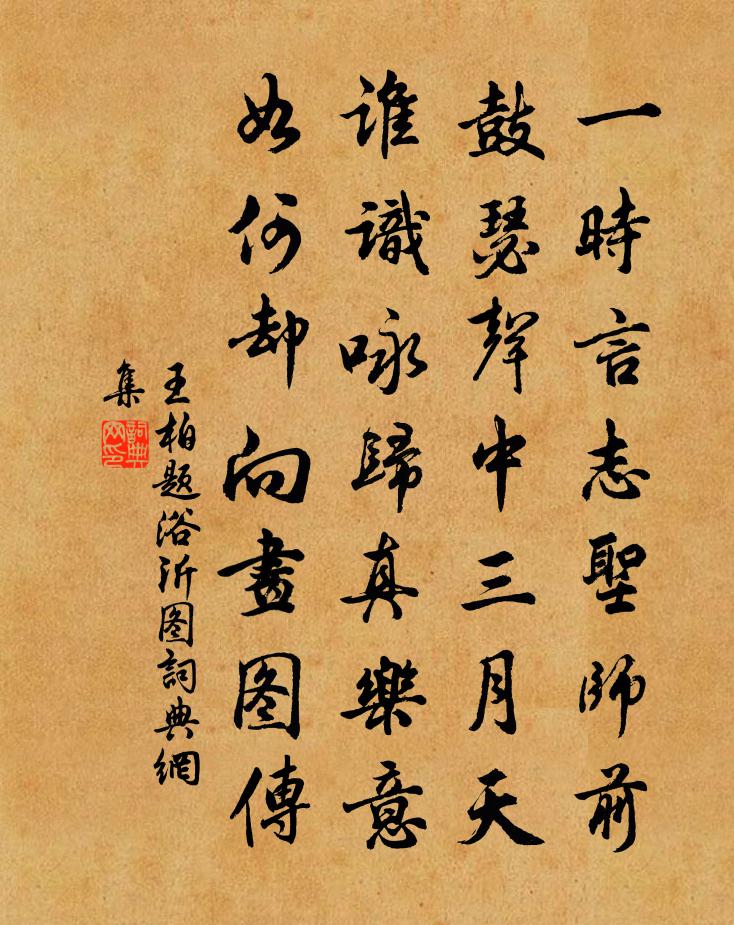 一時言志聖師前
鼓瑟聲中三月天
谁識咏歸真樂意
如何却向畫图傳
王柏题浴沂图詞典網
集
詞典
网印